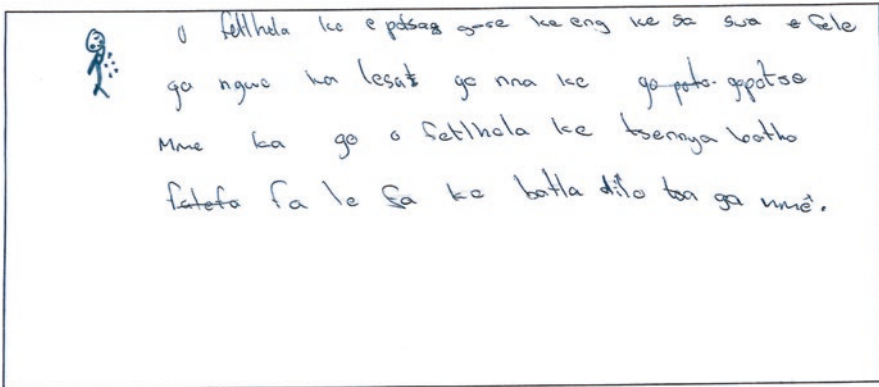 o fetlhela ke e potsag gore ke eng ke sa swa e fele
ga ngwe ka lesatt go nna ke go poto gopotse
Mme ka go o fetlhela ke tsennya botho
fatefa fa le fa ke batla dilo tsa ga mmê.